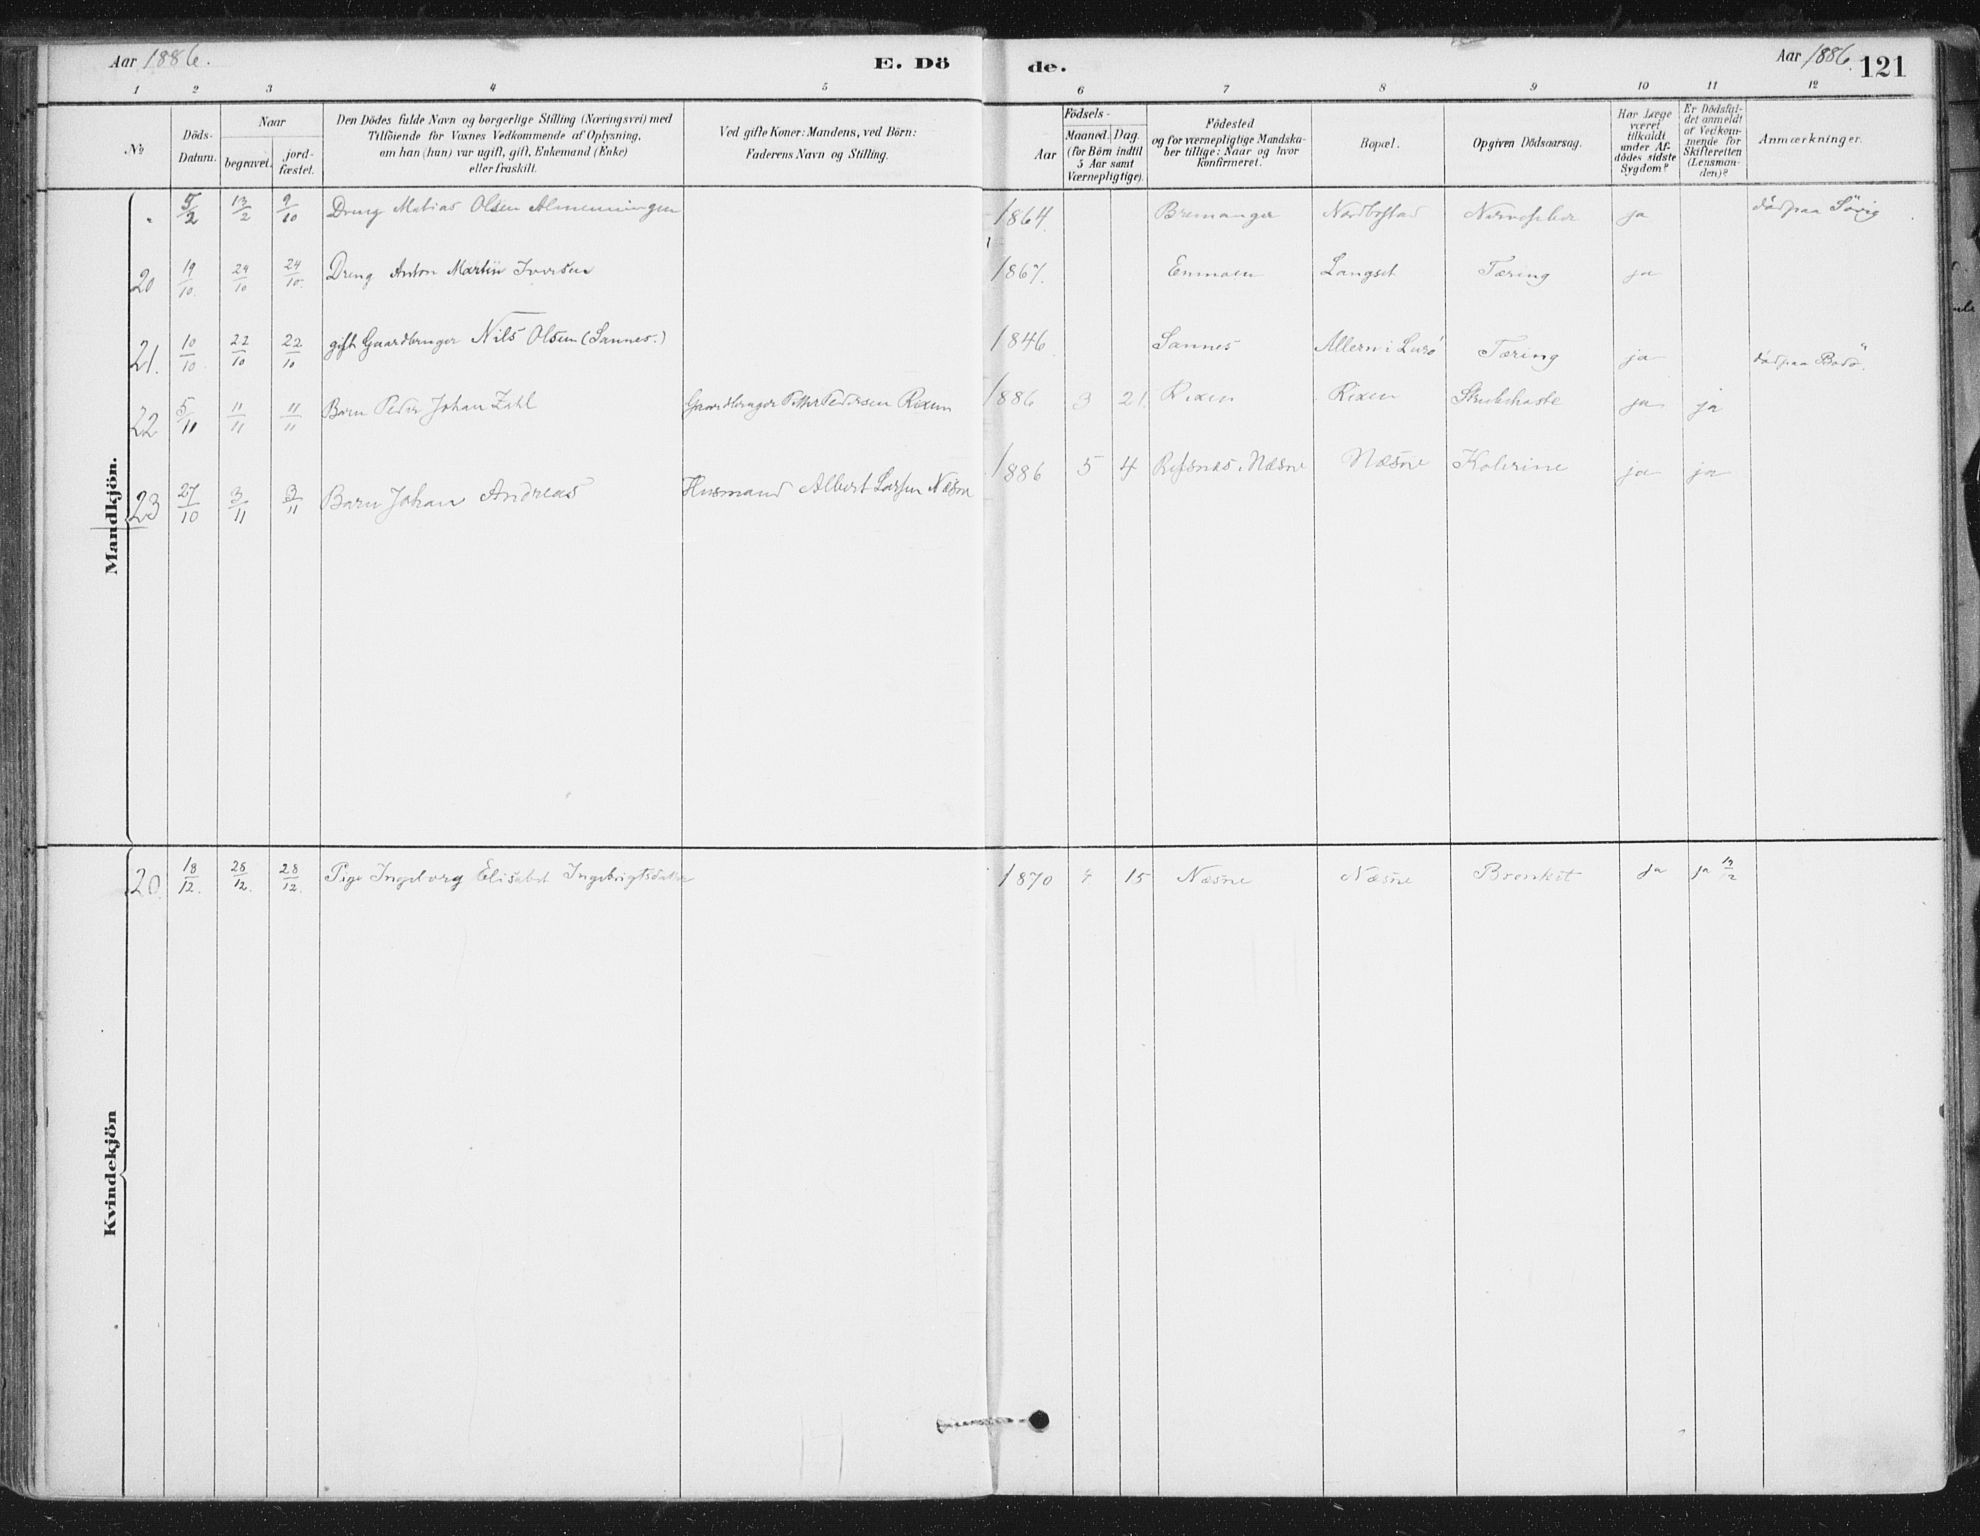 Aar 1886.
E. Dö de.
Aar 1886.
121
1 2 3 4 5 6 7 8 9 10 11 12
No
Döds-Datum.
Naar
begravet.
jord-fæstet.
Den Dödes fulde Navn og borgerlige Stilling (Næringsvei) med
Tilföiende for Voxnes Vedkommende af Oplysning,
om han (hun) var ugift, gift, Enkemand (Enke)
eller fraskilt.
Ved gifte Koner: Mandens, ved Börn:
Faderens Navn og Stilling.
Födsels-
Aar
Maaned. Dag.
(for Börn indtil
5 Aar samt
Værnepligtige).
Födested
og for værnepligtige Mandska-
ber tillige: Naar og hvor
konfirmeret.
Bopæl.
Opgiven Dödsaarsag.
Har Læge
været
tilkaldt
under Af-
dödes sidste
Sygdom?
Er Dödsfal-
det anmeldt
af Vedkom-
mende for
Skifteretten
(Lensman-
den)?
Anmærkninger.
Mandkjön.
" 5/2 13/2 9/10 Dreng Matias Olsen Almenningen 1864. Bremanger Nordbostad Nervefeber ja död paa
20 19/10. 24/10 24/10. Dreng Anton Martin Iversen 1867. Langset Tæring ja
21. 10/10. 22/10 22/10 gift Gaardbruger Nils Olsen (Sannes.) 1846 Sannes i Lurö Tæring ja död paa Bodö.
22 5/11 11/11 11/11 Barn Peder Johan Zahl Gaardbruger Petter Pedersen Rixen 1886 3 21. Rixen Rixen Strubehoste ja ja
23 27/10 3/11 3/11 Barn Johan Andreas Husmand Albert Larsen Næsne 1886 5 4 Næsne Næsne Kolerine ja ja
Kvindekjön
20. 18/12. 28/12. 28/12. Pige Ingeborg Elisabet Ingebrigtsdatter 1870 4 15 Næsne Næsne Bronkit ja ja 19/12